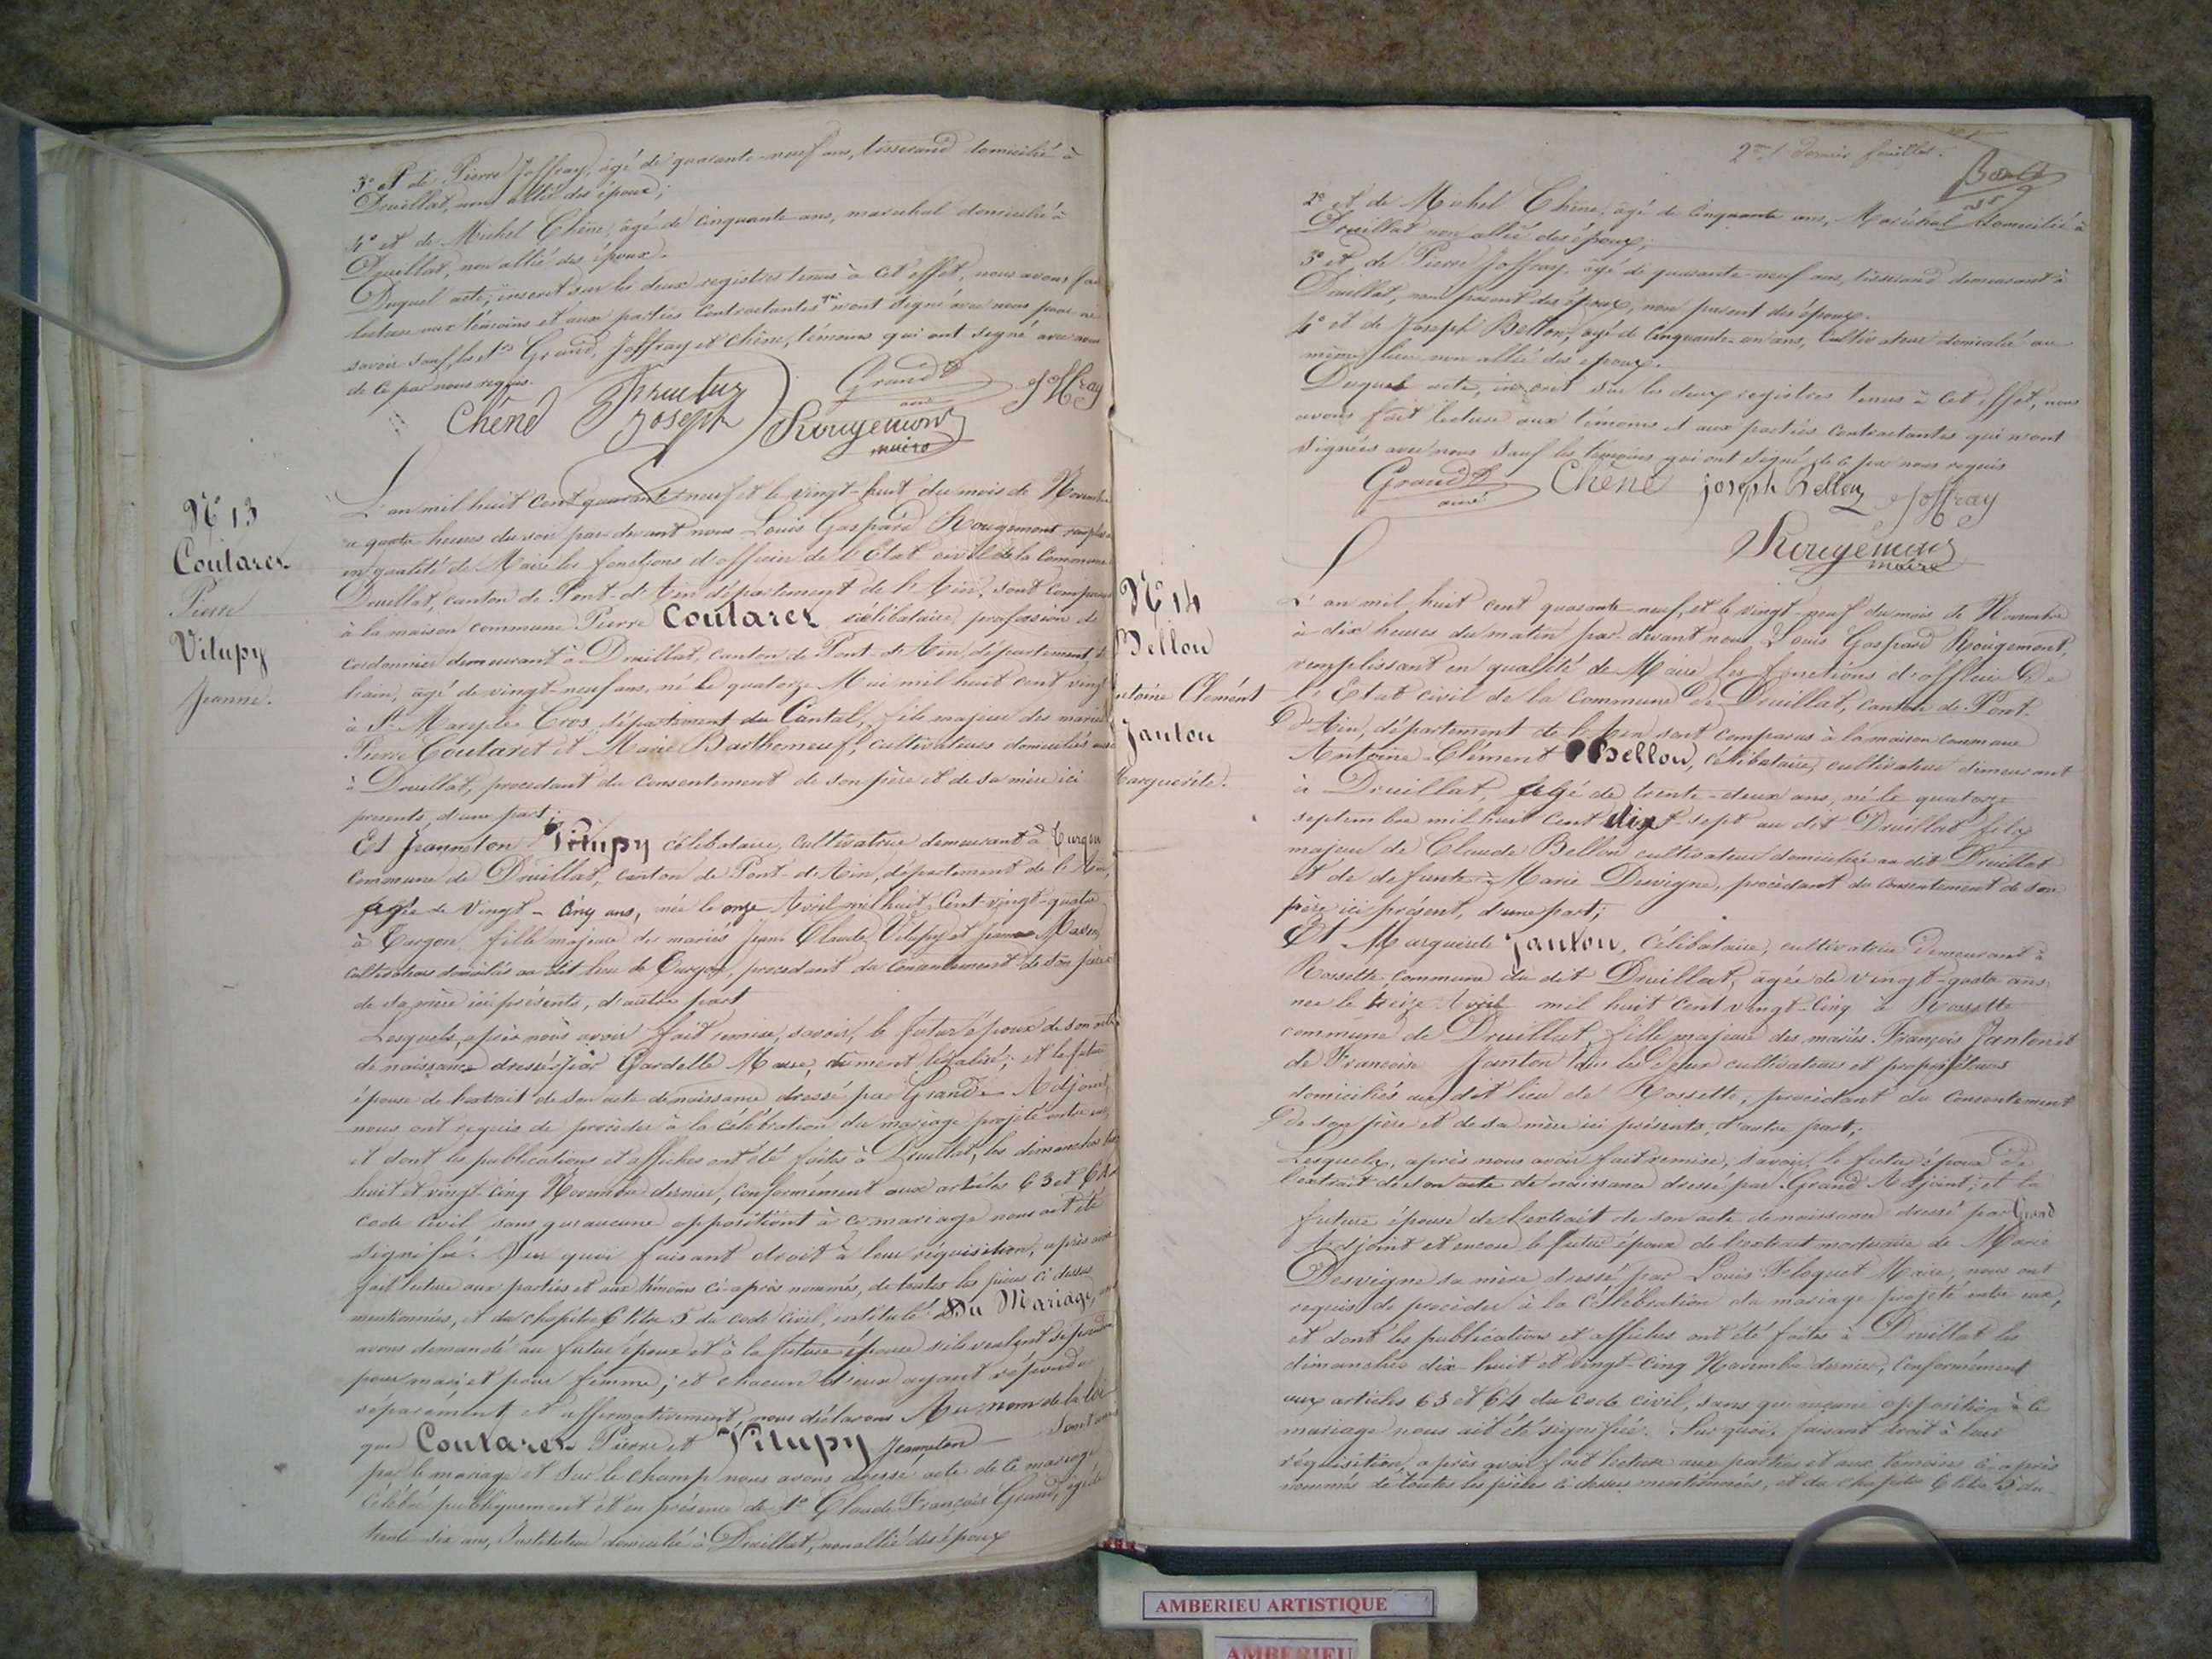 3° Et de Pierre Joffray, âgé de quarante-neuf ans, tisserand domicilié à
Druillat, non allié des époux;
4° et de Michel Chêne, âgé de cinquante ans, maréchal domicilié à
Druillat, non allié des époux.
Duquel acte, inscrit sur les deux registres tenus à cet effet, nous avons fait
lecture aux témoins et aux parties contractantes qui n'ont signé avec nous pour ne
savoir sauf les Grand, Joffray et Chêne, témoins qui ont signé avec nous
de ce par nous requis.
Grand
Joffray
Chêne
Joseph
Rougemont
maire
N° 13
Coutarez
Pierre
Vilupy
Jeanne.
L'an mil huit cent quarante-neuf et le vingt-huit du mois de Novembre
à quatre heures du soir par devant nous Louis Gaspard Rougemont
en qualité de Maire les fonctions d'officier de l'Etat civil de la commune
Druillat, canton de Pont-d'Ain département de l'Ain, sont comparus
à la maison commune Pierre Coutarez célibataire, profession de
cordonnier demeurant à Druillat, canton de Pont-d'Ain, département de
l'ain, âgé de vingt-neuf ans, né le quatorze Mai mil huit cent vingt
à St Mary le Cros, département du Cantal, fils majeur des mariés
Pierre Coutaret et Marie Barthomeuf, cultivateurs domiciliés
à Druillat, procedant du consentement de son père et de sa mère ici
presents, d'une part;
Et Jeanneton Vilupy célibataire, cultivatrice demeurant à Turgon
commune de Druillat, canton de Pont-d'Ain, département de l'Ain,
âgée de vingt-cinq ans, née le onze Avril mil huit cent vingt-quatre
à Turgon, fille majeure des mariés Jean Claude Vilupy et
cultivateurs domiciliés au dit lieu de Turgon, procedant du consentement de son père et
de sa mère ici présents, d'autre part
Lesquels, après nous avoir fait remise, savoir, le futur époux de son
de naissance dressé par Gardelle Maire, dument légalisé; et la future
épouse de l'extrait de son acte de naissance dressé par Grand Adjoint,
nous ont requis de procéder à la célébration du mariage projeté entre eux,
et dont les publications et affiches ont été faites à Druillat, les dimanches dix
huit et vingt-cinq Novembre dernier, conformément aux articles 63 et 64
code civil sans qu'aucune opposition à ce mariage nous ait été
signifié. Sur quoi faisant droit à leur réquisition, après avoir
fait lecture aux parties et aux témoins ci-après nommés, de toutes les pièces ci dessus
mentionnées, et du chapitre 6 titre 5 du code civil, intitulé Du Mariage,
avons demandé au futur époux et à la future épouse s'ils veulent se prendre
pour mari et pour femme; et chacun d'eux ayant répondu
separement et affirmativement, nous déclarons Au nom de la loi
que Coutarez Pierre et Vilupy Jeanneton sont unis
par le mariage et sur le champ nous avons dressé acte de ce mariage
célébré publiquement et en présence de 1° Claude François Grand, âgé de
trente-six ans, Instituteur domicilié à Druillat, non allié des époux
2me et dernier feuillet.
2° et de Michel Chêne, âgé de cinquante ans, Maréchal domicilié à
Druillat non allié des époux;
3° et de Pierre Joffray, âgé de quarante-neuf ans, tisserand demeurant à
Druillat, non parent des époux, non parent des époux.
4° et de Joseph Bellon, âgé de cinquante-un ans, cultivateur domicilié au
même lieu non allié des époux.
Duquel acte, inscrit sur les deux registres tenus à cet effet, nous
avons fait lecture aux témoins et aux parties contractantes qui n'ont
signées avec nous sauf les témoins qui ont signé, de ce par nous requis
Grand
Chêne
Joseph Bellon
Joffray
Rougemont
maire
N° 14
Bellon
Antoine Clément
Janton
Marguerite.
L'an mil huit cent quarante-neuf, et le vingt-neuf du mois de Novembre
à dix heures du matin par-devant nous Louis Gaspard Rougemont,
remplissant en qualité de Maire les fonctions d'officier de
l'Etat civil de la commune de Druillat, canton de Pont-
d'Ain, département de l'Ain sont comparus à la maison commune
Antoine-Clément Bellon, célibataire, cultivateur demeurant
à Druillat, âgé de trente-deux ans, né le quatorze
septembre mil huit cent dix-sept au dit Druillat fils
majeur de Claude Bellon cultivateur domicilié au dit Druillat
et de defunte Marie Desvigne, procédant du consentement de son
père ici présent, d'une part;
Et Marguerite Janton, célibataire, cultivatrice demeurant à
Rossette, commune du dit Druillat, âgée de vingt-quatre ans,
née le treize Avril mil huit cent vingt-cinq à Rossette
commune de Druillat fille majeure des mariés François Janton et
de Françoise Janton tous les deux cultivateurs et propriétaires
domiciliés au dit lieu de Rossette, procédant du consentement
de son père et de sa mère ici présents, d'autre part;
Lesquels, après nous avoir fait remise, savoir, le futur époux de
l'extrait de son acte de naissance dressé par Grand Adjoint; et la
future épouse de l'extrait de son acte de naissance dressé par Grand
Adjoint et encore le futur époux de l'extrait mortuaire de Marie
Desvigne sa mère dressé par Louis Floquet Maire, nous ont
requis de procéder à la célébration du mariage projeté entre eux,
et dont les publications et affiches ont été faites à Druillat les
dimanches dix-huit et vingt-cinq Novembre dernier, conformément
aux articles 63 et 64 du code civil, sans qu'aucune opposition à ce
mariage nous ait été signifiée. Sur quoi, faisant droit à leur
réquisition, après avoir fait lecture aux parties et aux témoins ci-après
nommés de toutes les pièces ci dessus mentionnées, et du chapitre 6 titre 5 du
AMBERIEU ARTISTIQUE
AMBERIEU